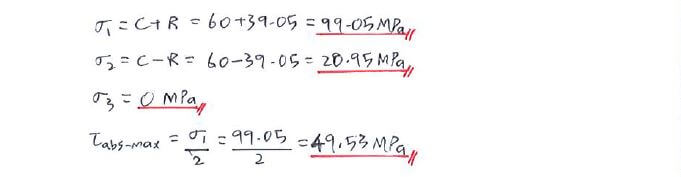 σ₁ = C+R = 60+39.05 = 99.05MPa
σ₂ = C-R = 60-39.05 = 20.95MPa
σ₃ = 0 MPa
τabs-max = σ₁/2 = 99.05/2 = 49.53MPa